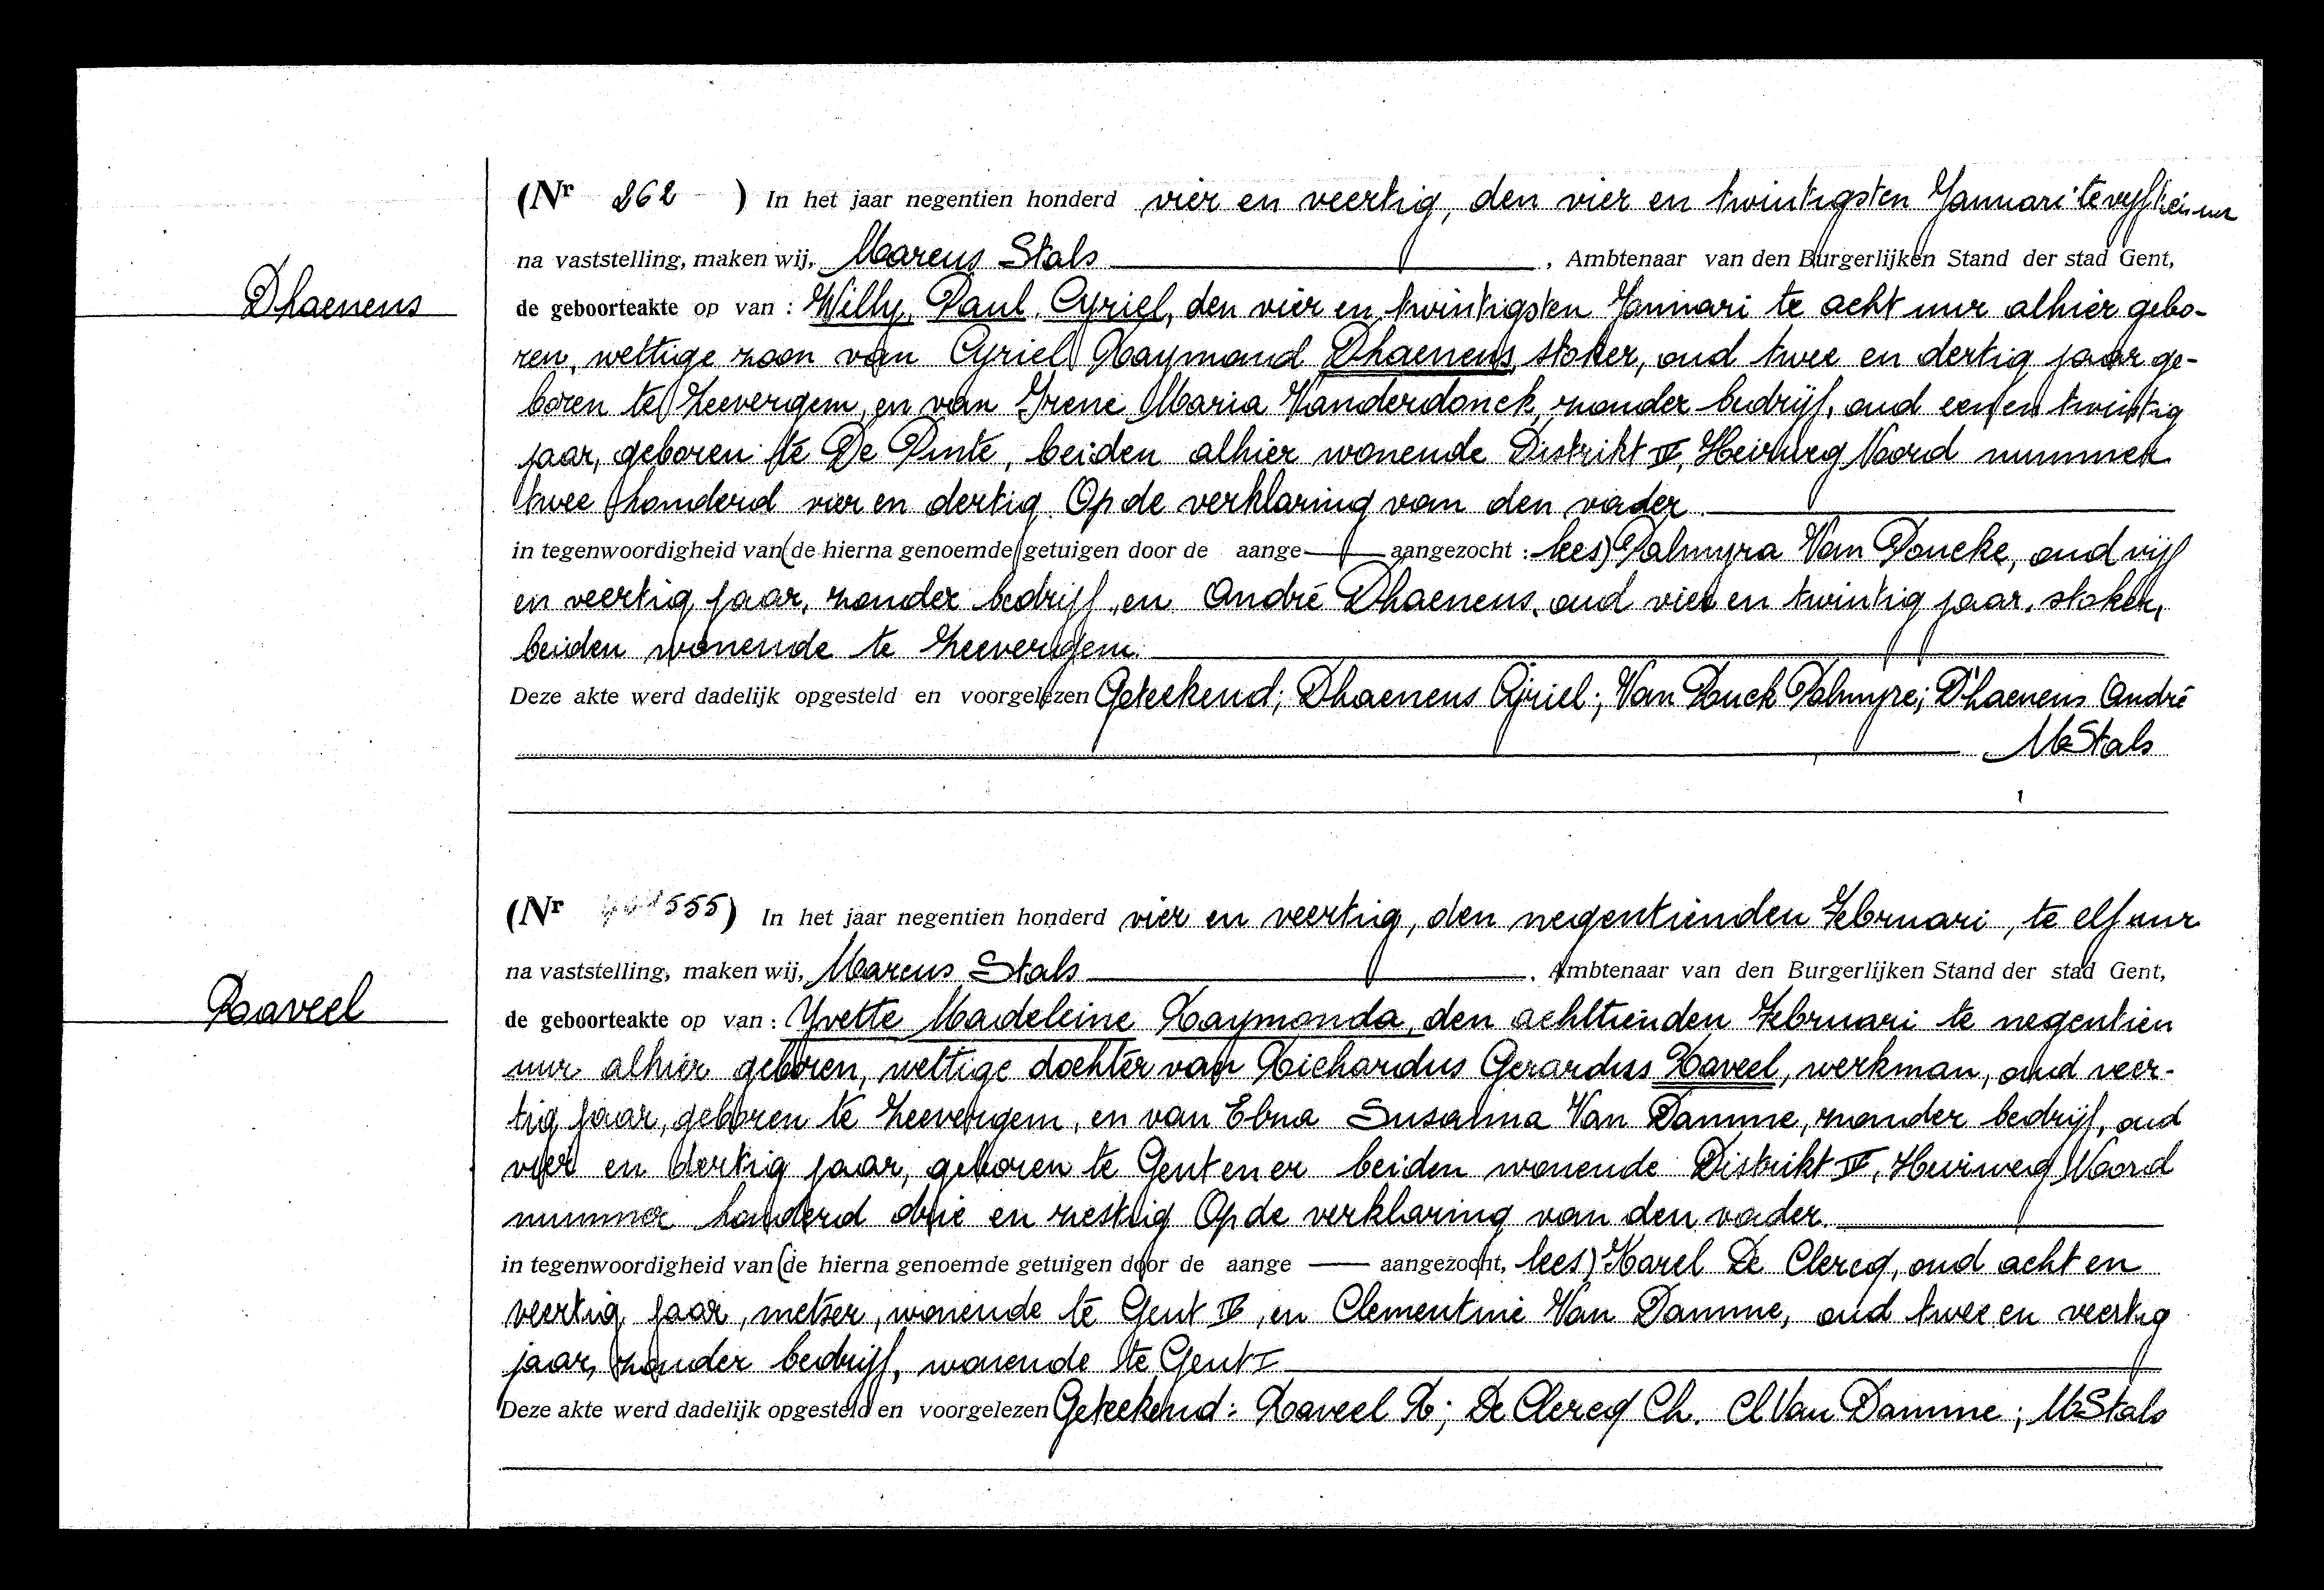 (Nr 262 ) In het jaar negentien honderd vier en veertig, den vier en twintigsten Januari te vyftien uur
na vaststelling, maken wij, Marcus Stals, Ambtenaar van den Burgerlijken Stand der stad Gent,
Dhaenens
de geboorteakte op van : Willy, Paul, Cyriel, den vier en twintigsten Januari te acht uur alhier gebo-
ren, wettige zoon van Cyriel Raymond Dhaenens, stoker, oud twee en dertig jaar ge-
boren te Zeevergem, en van Irene Maria Vanderdonck, zonder bedrijf, oud een en twintig
jaar, geboren te De Pinte, beiden alhier wonende Distrikt IV, Heirweg Noord nummer
twee honderd vier en dertig. Op de verklaring van den vader.
in tegenwoordigheid van (de hierna genoemde getuigen door de aange— aangezocht : lees) Palmyra Van Poucke, oud vijf
en veertig jaar, zonder bedrijf, en André Dhaenens, oud vier en twintig jaar, stoker,
beiden wonende te Zeevergem.
Deze akte werd dadelijk opgesteld en voorgelezen Geteekend; Dhaenens Cyriel; Van Pouck Palmyre; D'haenens André
M Stals
(Nr 555) In het jaar negentien honderd vier en veertig, den negentienden Februari, te elf uur
na vaststelling, maken wij, Marcus Stals, Ambtenaar van den Burgerlijken Stand der stad Gent,
Raaveel
de geboorteakte op van : Yvette Madeleine Raymonda, den achttienden Februari te negentien
uur alhier geboren, wettige dochter van Richardus Gerardus Raveel, werkman, oud veer-
tig jaar, geboren te Zeevergem, en van Elna Susanna Van Damme, zonder bedrijf, oud
vier en dertig jaar, geboren te Gent en er beiden wonende Distrikt IV, Heirweg Noord
nummer honderd drie en zestig Op de verklaring van den vader.
in tegenwoordigheid van (de hierna genoemde getuigen door de aange — aangezocht, lees) Karel De Clercq, oud acht en
veertig jaar, metser, wonende te Gent IV, en Clementine Van Damme, oud twee en veertig
jaar, zonder bedrijf, wonende te Gent I
Deze akte werd dadelijk opgesteld en voorgelezen Geteekend : Raveel R; De Clercq Ch. Cl Van Damme ; M Stals